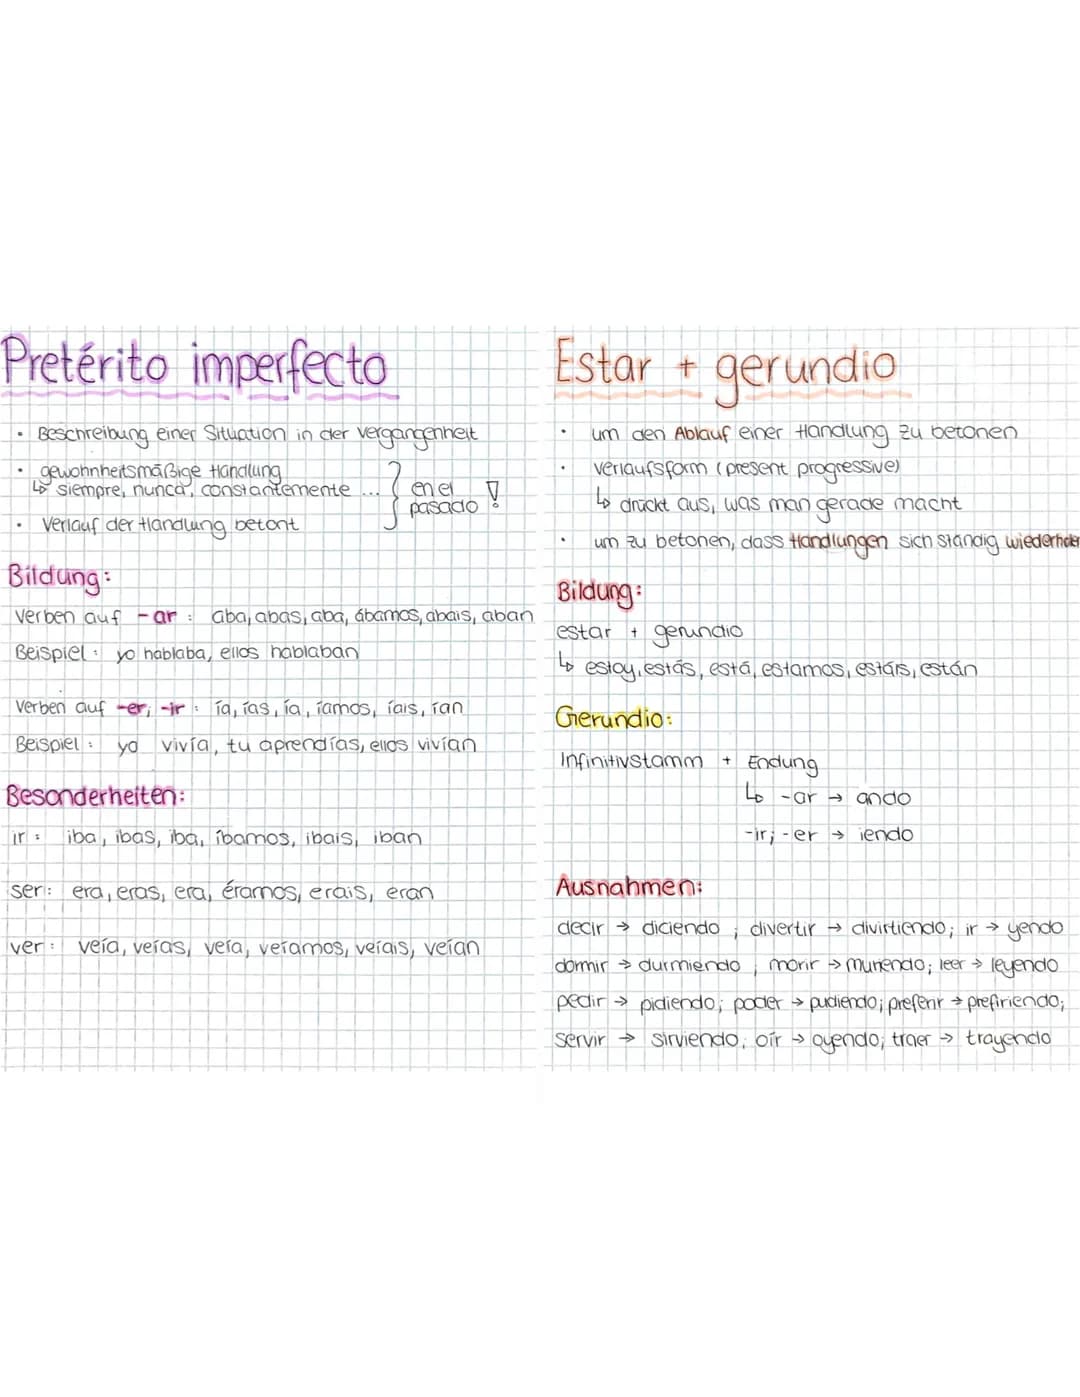 Pretérito imperfecto
• Beschreibung einer Situation in der Vergangenheit
• gewohnheitsmäßige Handlung
↳ siempre, nunca, constantemente ...
en el pasado !
• Verlauf der Handlung betont
Bildung:
Verben auf -ar : aba, abas, aba, ábamos, abais, aban
Beispiel : yo hablaba, ellos hablaban
Verben auf -er, -ir : ía, ías, ía, íamos, íais, ían
Beispiel : yo vivía, tu aprendías, ellos vivían
Besonderheiten:
ir : iba, ibas, iba, íbamos, ibais, iban
ser : era, eras, era, éramos, erais, eran
ver : veía, veías, veía, veíamos, veíais, veían
Estar + gerundio
• um den Ablauf einer Handlung zu betonen
• Verlaufsform (present progressive)
↳ drückt aus, was man gerade macht
• um zu betonen, dass Handlungen sich ständig wiederholen
Bildung:
estar + gerundio
↳ estoy, estás, está, estamos, estáis, están
Gerundio:
Infinitivstamm + Endung
↳ -ar → ando
-ir; -er → iendo
Ausnahmen:
decir → diciendo ; divertir → divirtiendo; ir → yendo
dormir → durmiendo ; morir → muriendo; leer → leyendo
pedir → pidiendo; poder → pudiendo; preferir → prefiriendo;
servir → sirviendo; oír → oyendo; traer → trayendo